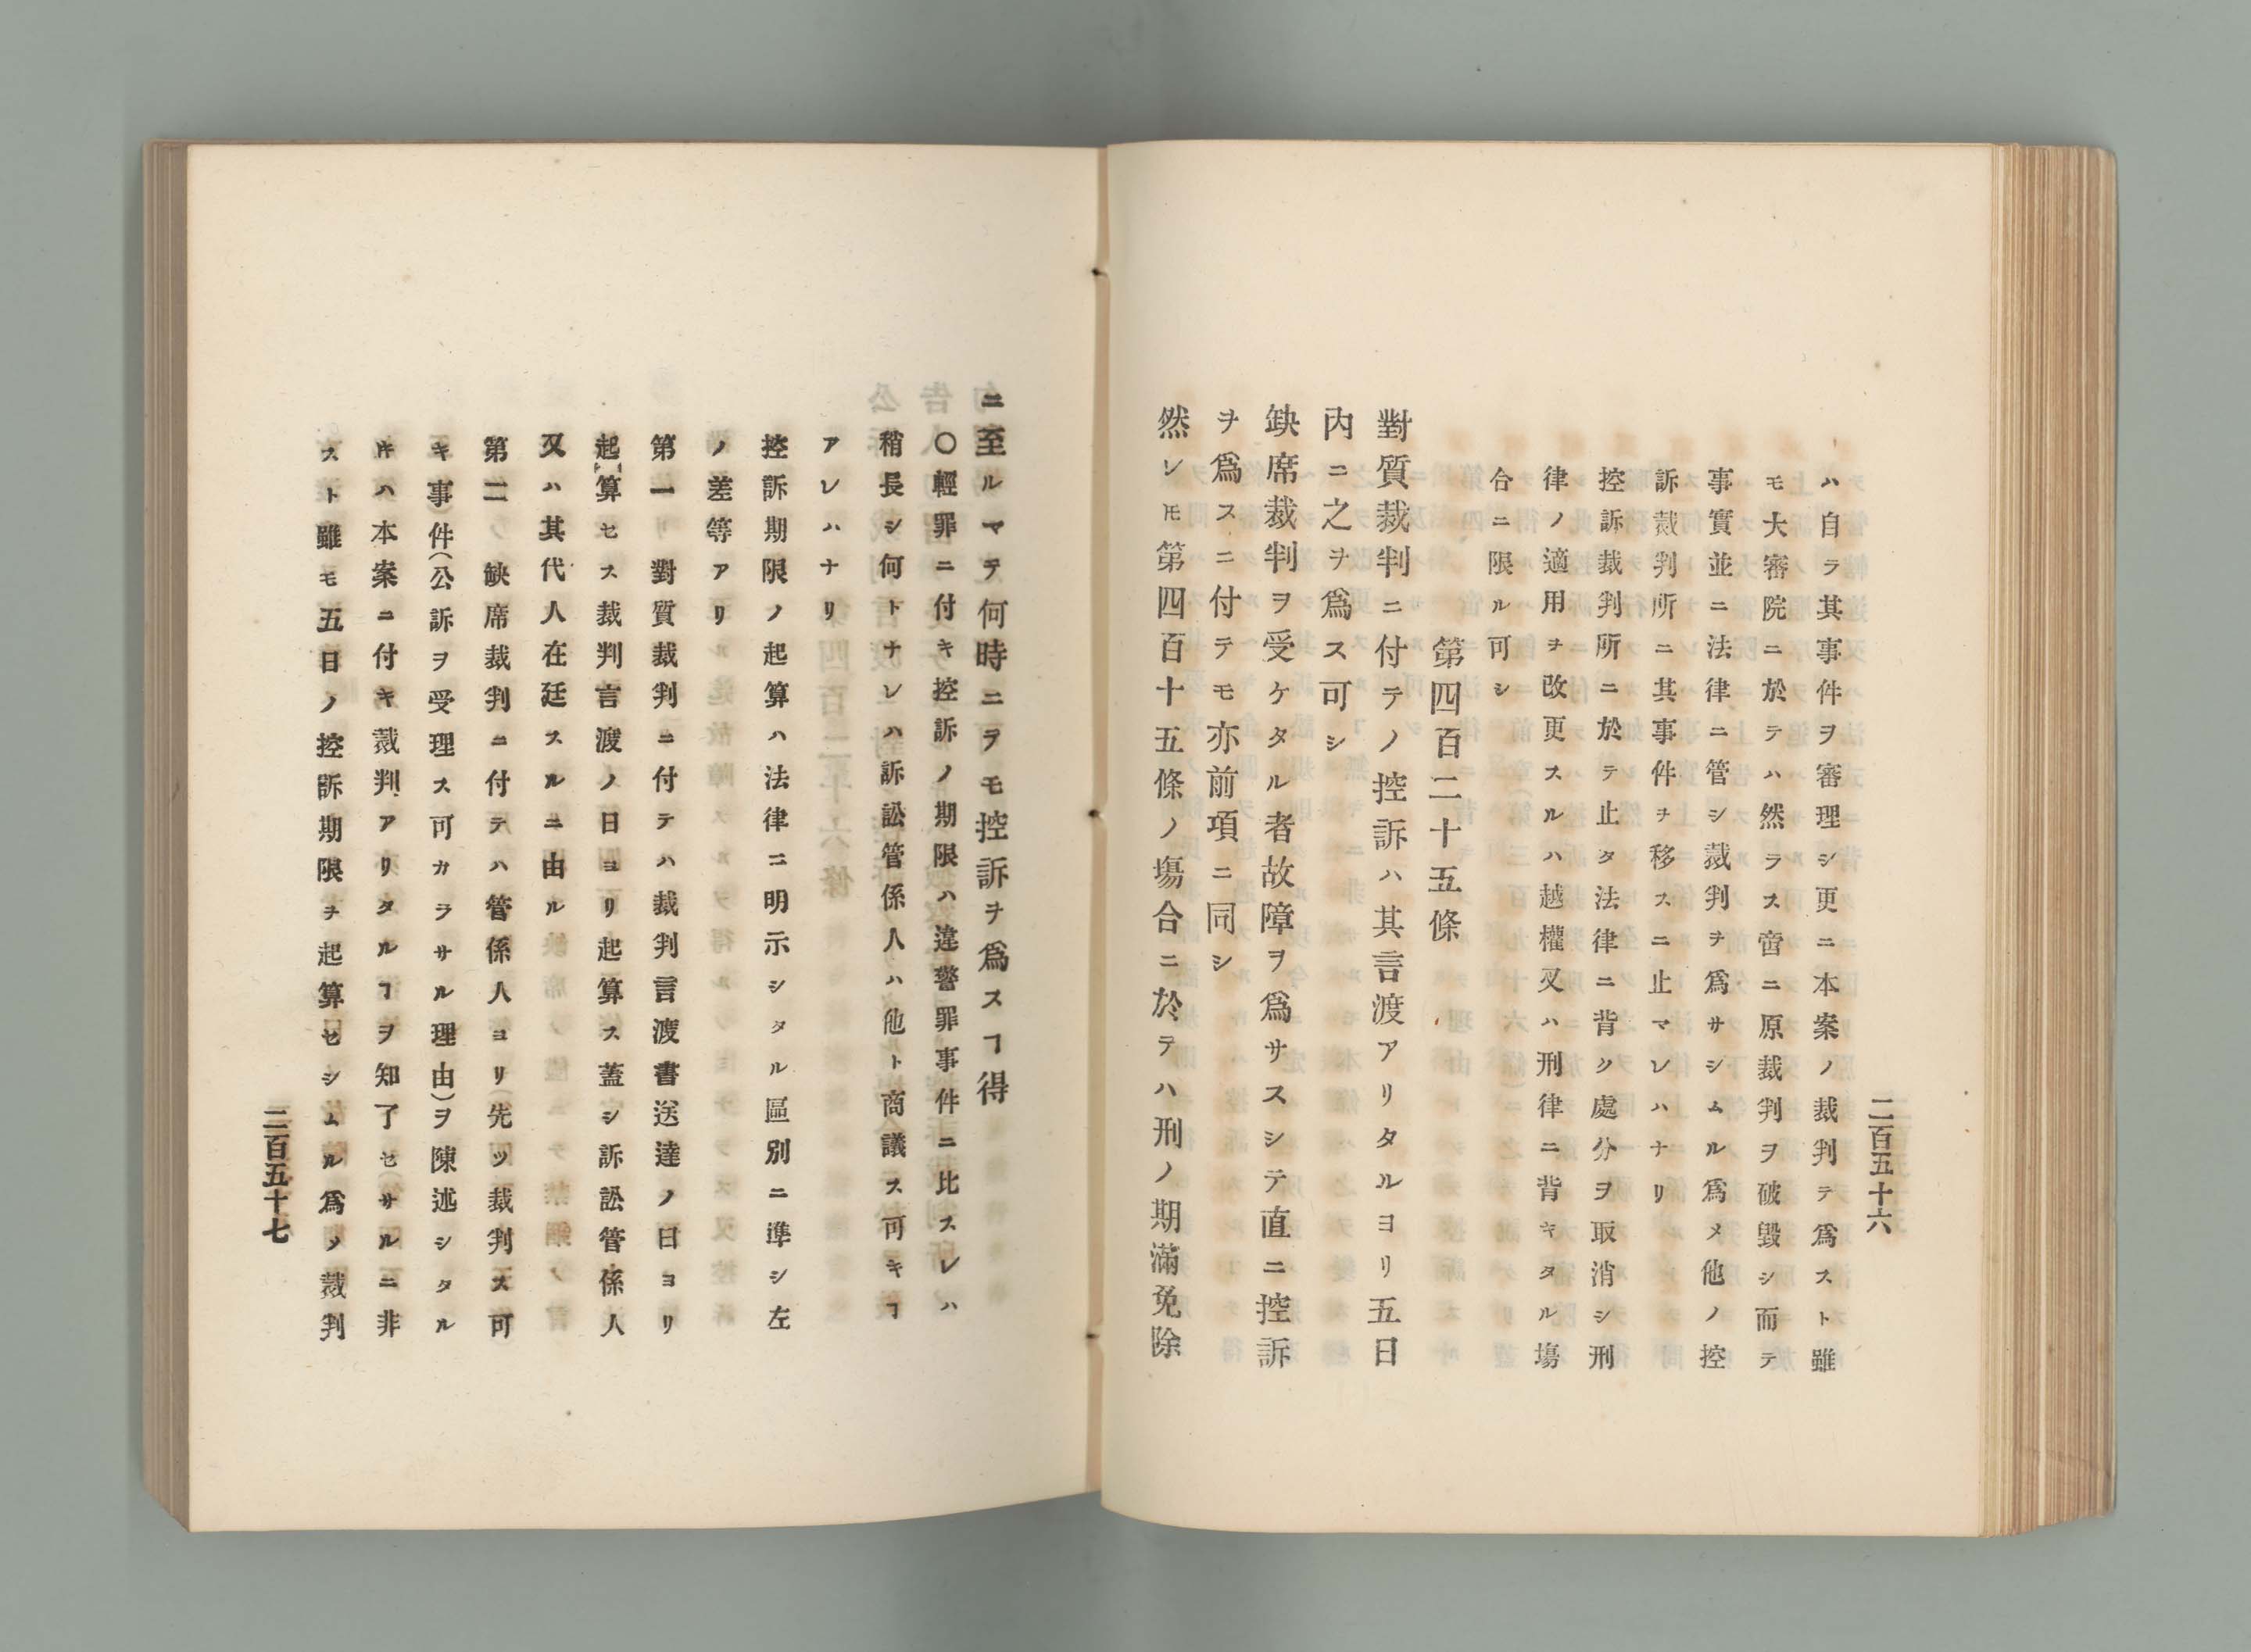 二百五十六
ハ自ラ其事件ヲ審理シ更ニ本案ノ裁判テ爲スト雖
モ大審院ニ於テハ然ラス啻ニ原裁判ヲ破毀シ而テ
事實並ニ法律ニ管シ裁判ヲ爲サシムル爲メ他ノ控
訴裁判所ニ其事件ヲ移スニ止マレハナリ
控訴裁判所ニ於テ止タ法律ニ背ク處分ヲ取消シ刑
律ノ適用ヲ改更スルハ越權又ハ刑律ニ背キタル塲
合ニ限ル可シ
第四百二十五條
對質裁判ニ付テノ控訴ハ其言渡アリタルヨリ五日
内ニ之ヲ爲ス可シ
缺席裁判ヲ受ケタル者故障ヲ爲サスシテ直ニ控訴
ヲ爲スニ付テモ亦前項ニ同シ
然レ𪜈第四百十五條ノ塲合ニ於テハ刑ノ期滿免除
ニ至ルマテ何時ニヲモ控訴ヲ爲スヿ得
〇輕罪ニ付キ控訴ノ期限ハ違警罪事件ニ比スレハ
稍長シ何トナレハ訴訟管係人ハ他ト商議ス可キヿ
アレハナリ
控訴期限ノ起算ハ法律ニ明示シタル區別ニ準シ左
ノ差等アリ
第一　對質裁判ニ付テハ裁判言渡書送達ノ日ヨリ
起算セス裁判言渡ノ日ヨリ起算ス蓋シ訴訟管係人
又ハ其代人在廷スルニ由ル
第二　缺席裁判ニ付テハ管係人ヨリ先ツ裁判ス可
キ事件(公訴ヲ受理ス可カラサル理由)ヲ陳述シタル
𪜈ハ本案ニ付キ裁判アリタルヿヲ知了セサルニ非
スト雖モ五日ノ控訴期限ヲ起算セシムル爲ノ裁判
二百五十七